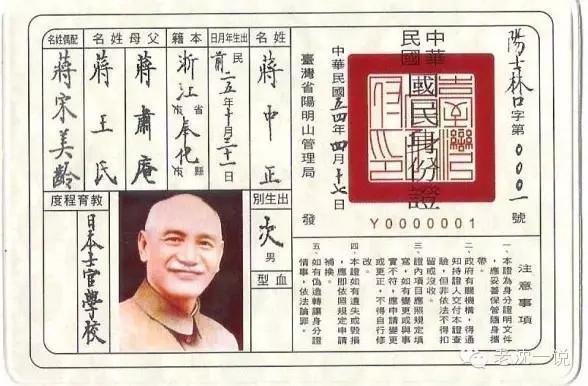 陽士林口字第0001號
中華民國
國民身份證
Y0000001
中華民國五四年四月十七日
臺灣省陽明山管理局 發
姓名
蔣中正
出生年月日
民前二五年十月三十一日
本籍
浙江省市奉化縣市
父母姓名
蔣肅庵
蔣王氏
配偶姓名
蔣宋美齡
出生別
男
血型
教育程度
日本士官學校
注意事項
一、本證為身分證明文件
，應妥善保管隨身攜
帶。
二、政府有關機構，得通
知持證人交付本證查
驗，但非依法不得扣
留或沒收。
三、證內項目應照規定填
寫，如有變更或與事
實不符，應申請變更
或更正，不得自行修
改。
四、本證如有遺失或毀損
，應即依照規定申請
補換。
五、如有偽造轉讓身分證
情事，依法論罪。
老沈一说